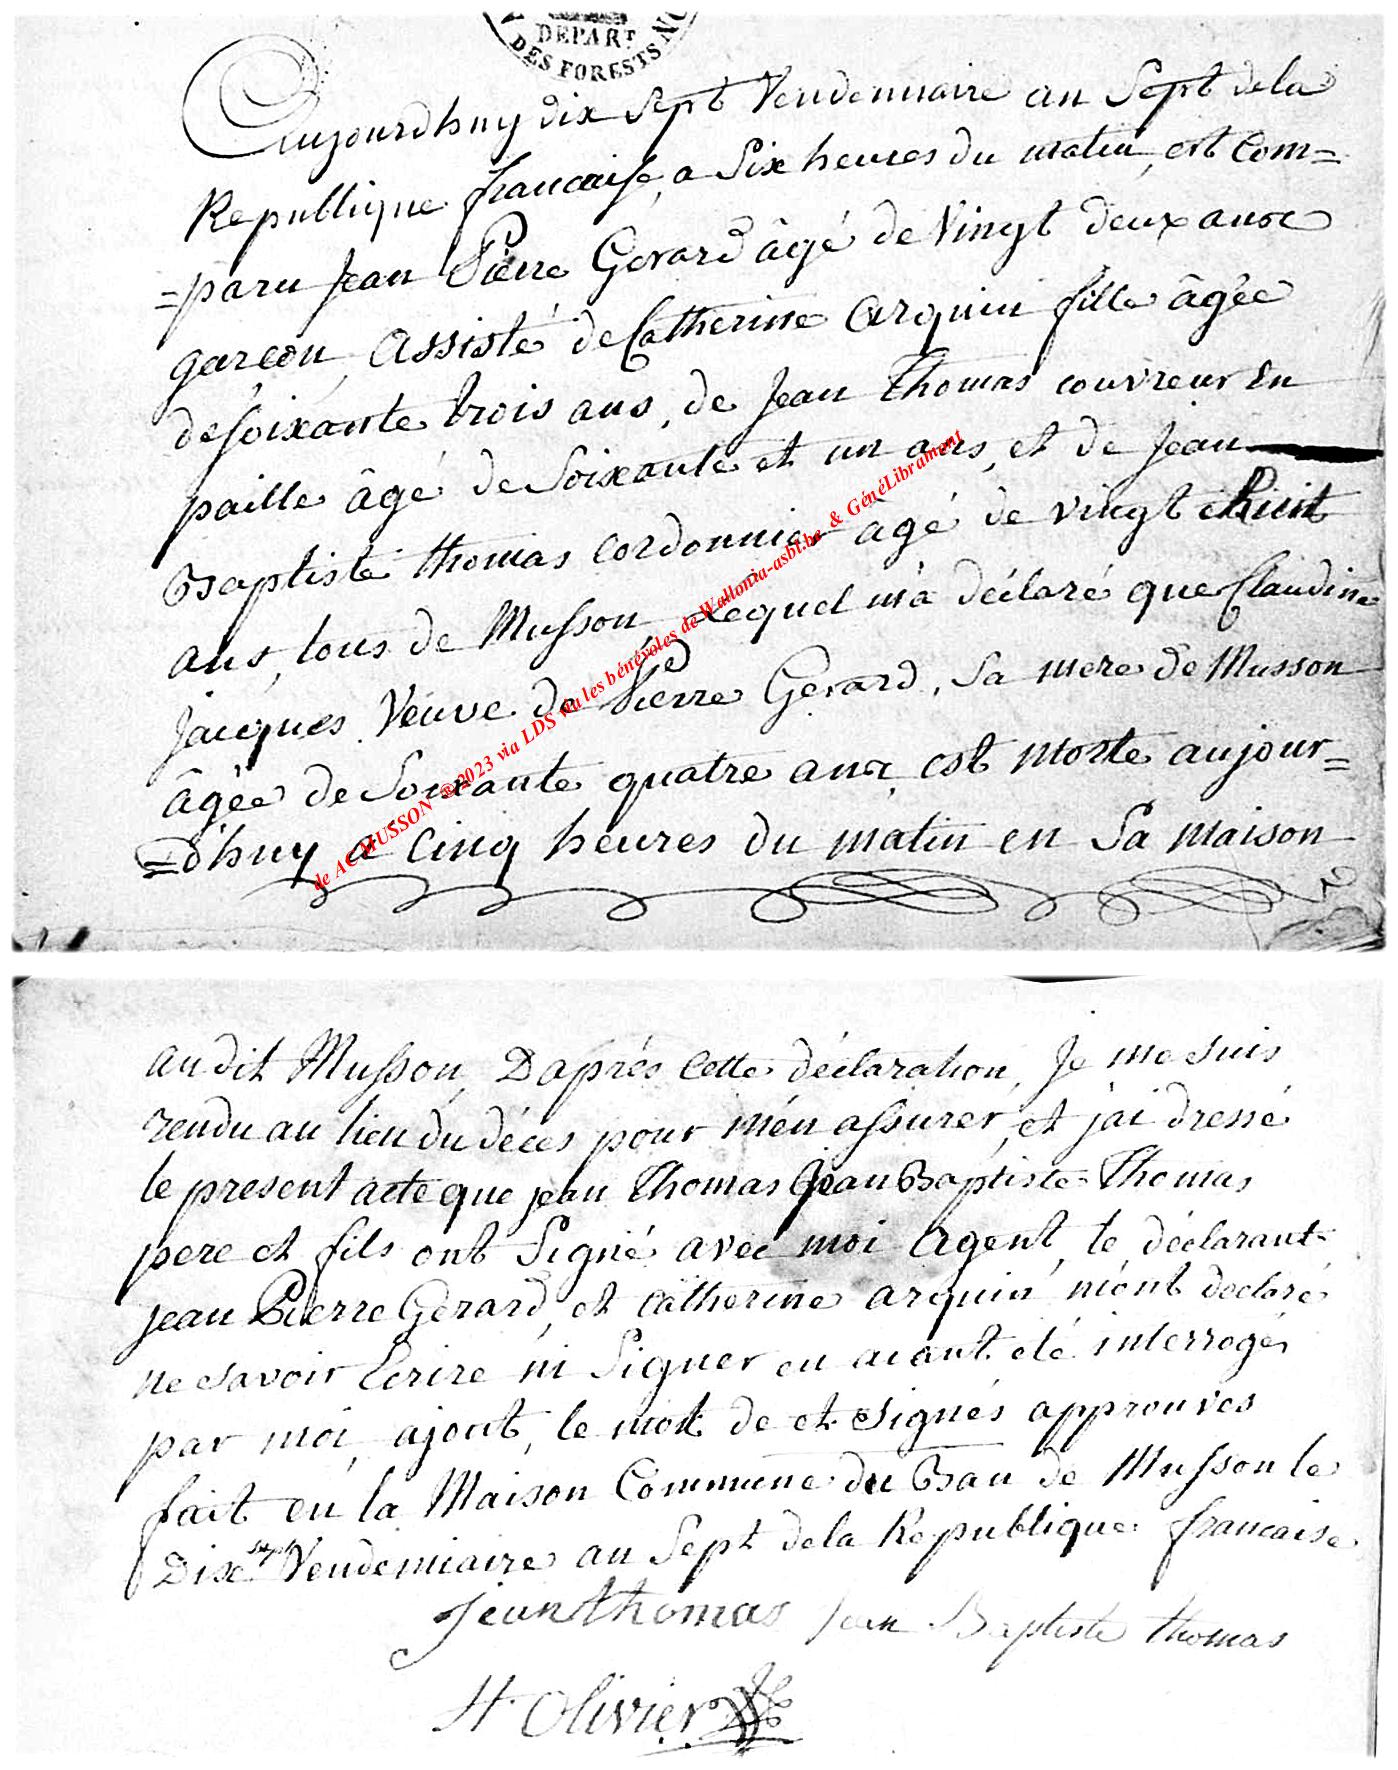 DEPART
DES FORESTS
Aujourdhuy dix Sept Vendemiaire an Sept de la
Republique francaise, a Six heures du matin, est Com=
=paru Jean Pierre Gerard âgé de Vingt deux ans
garcon, assisté de Catherine arquin fille âgée
de soixante trois ans, de Jean Thomas couvreur En
paille âgé de Soixante et un ans, et de Jean
Baptiste thomas cordonnier âgé de vingt huit
ans, tous de Musson Lequel m'a déclaré que Claudine
jacques Veuve de Pierre Gerard, Sa mere de Musson
âgée de Soixante quatre ans est morte aujour=
=d'huy a Cinq heures du matin en Sa maison
de AC MUSSON ®2023 via LDS ou les bénévoles de Wallonia-asbl.be & GénéLibrament
audit Musson, Daprés Cette déclaration, Je me suis
rendu au lieu du décés pour m'en assurer, et j'ai dressé
le present acte que jean Thomas Jean Baptiste Thomas
pere et fils ont Signé avec moi agent, le déclarant
jean Pierre Gerard, et Catherine arquin m'ont declaré
ne savoir Ecrire ni Signer en aiant été interrogés
par moi, ajout, le mot de et signés approuvés
fait en la Maison Commune du Ban de Musson le
Dix sept Vendemiaire an Sept de la Republique francaise
jean thomas Jean Baptiste thomas
H Olivier